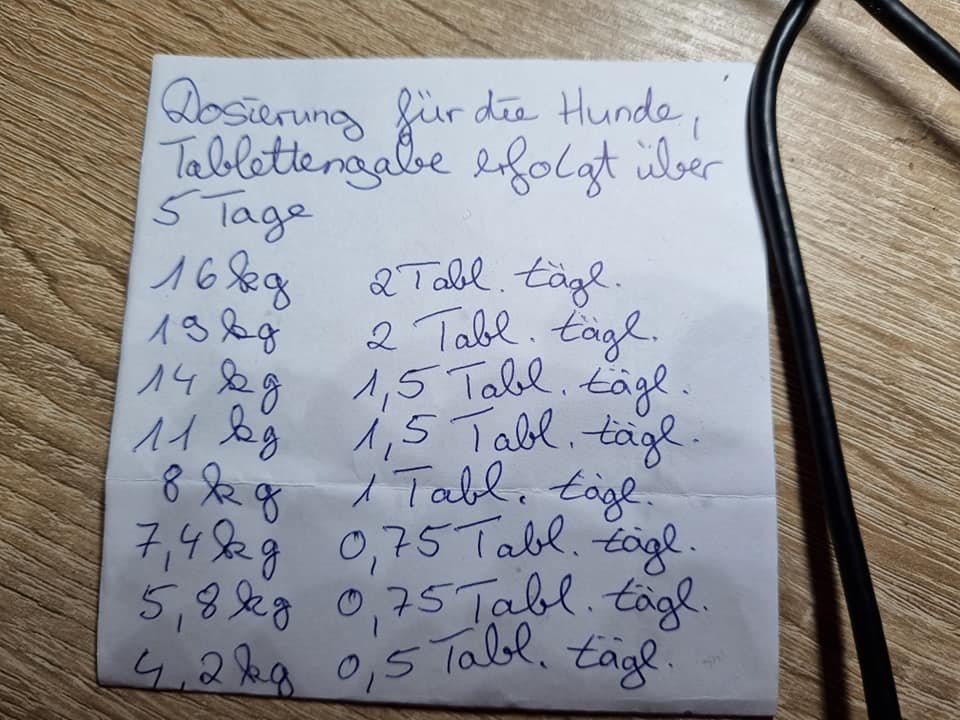 Dosierung für die Hunde,
Tablettengabe erfolgt über
5 Tage
16 kg 2 Tabl. tägl.
19 kg 2 Tabl. tägl.
14 kg 1,5 Tabl. tägl.
11 kg 1,5 Tabl. tägl.
8 kg 1 Tabl. tägl.
7,4 kg 0,75 Tabl. tägl.
5,8 kg 0,75 Tabl. tägl.
4,2 kg 0,5 Tabl. tägl.